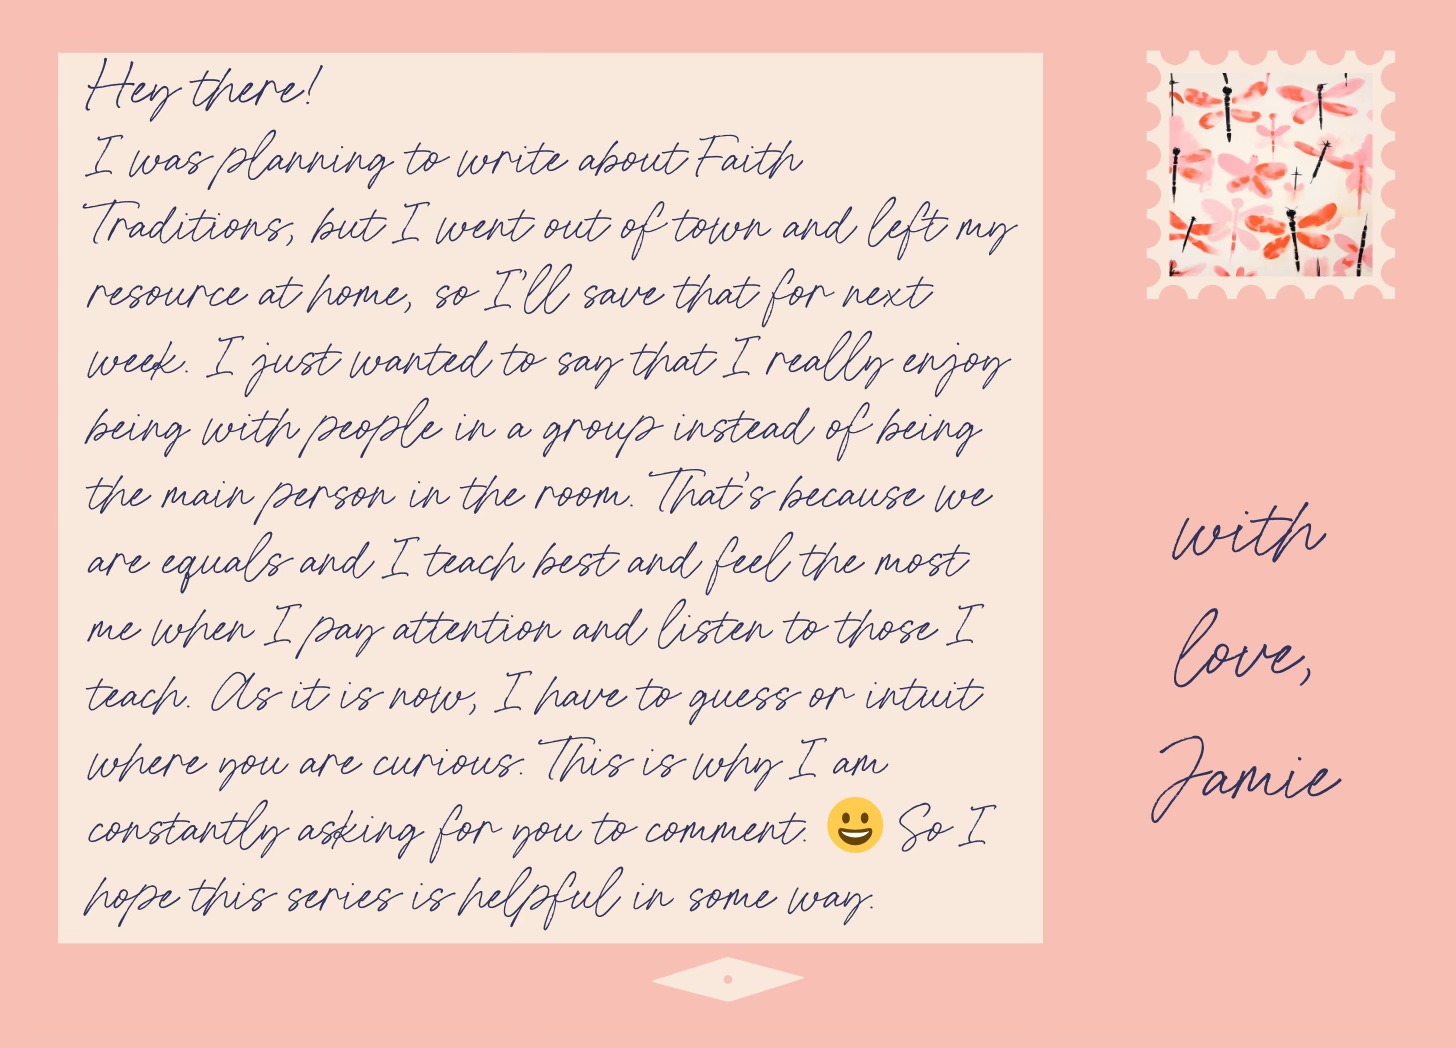 Hey there!
I was planning to write about Faith
Traditions, but I went out of town and left my
resource at home, so I'll save that for next
week. I just wanted to say that I really enjoy
being with people in a group instead of being
the main person in the room. That's because we
are equals and I teach best and feel the most
me when I pay attention and listen to those I
teach. As it is now, I have to guess or intuit
where you are curious. This is why I am
constantly asking for you to comment. 😀 So I
hope this series is helpful in some way.
with
love,
Jamie